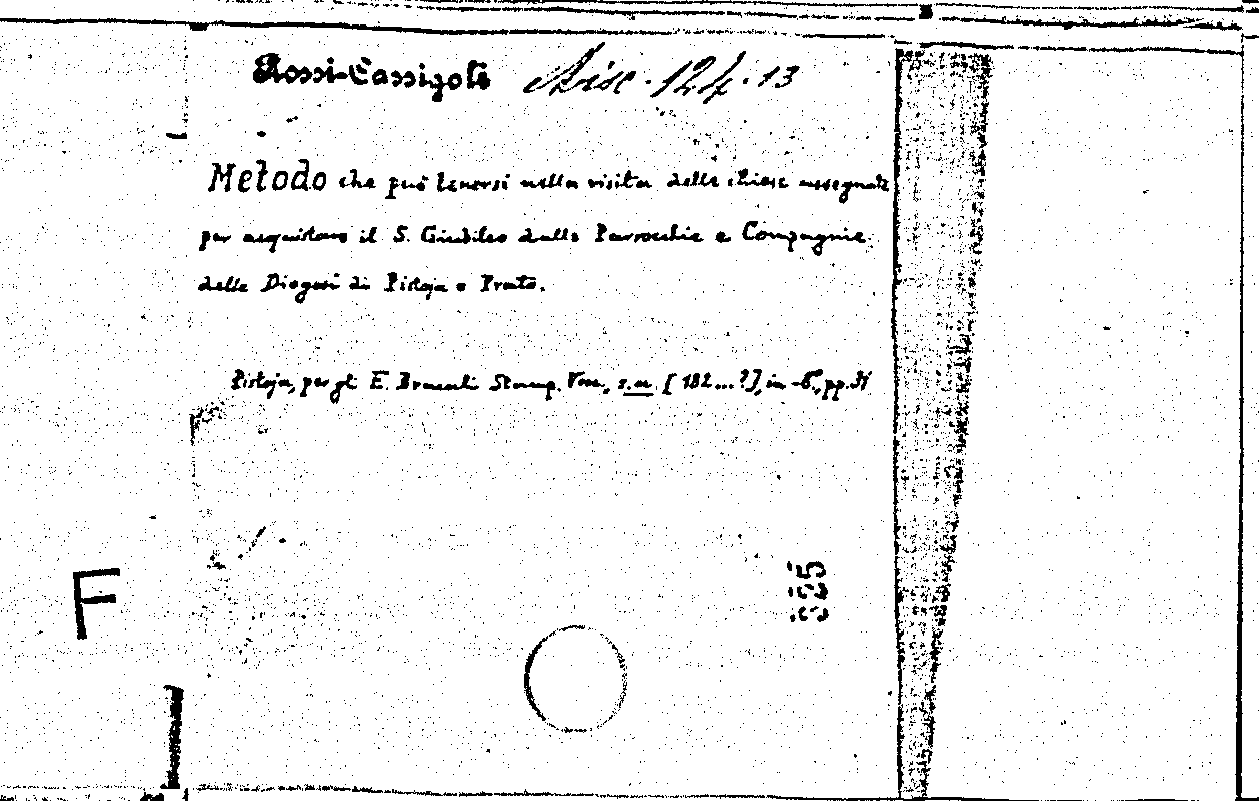 Rossi-Cassigoli Misc. 124.13
Metodo che può tenersi nella visita delle chiese assegnate
per acquistare il S. Giubileo dalle Parrocchie e Compagnie
delle Diogesi di Pistoja e Prato.
Pistoja, per gli E. Bracali Stamp. Vesc., s.a. [182...?], in-6º, pp. 31
325
F